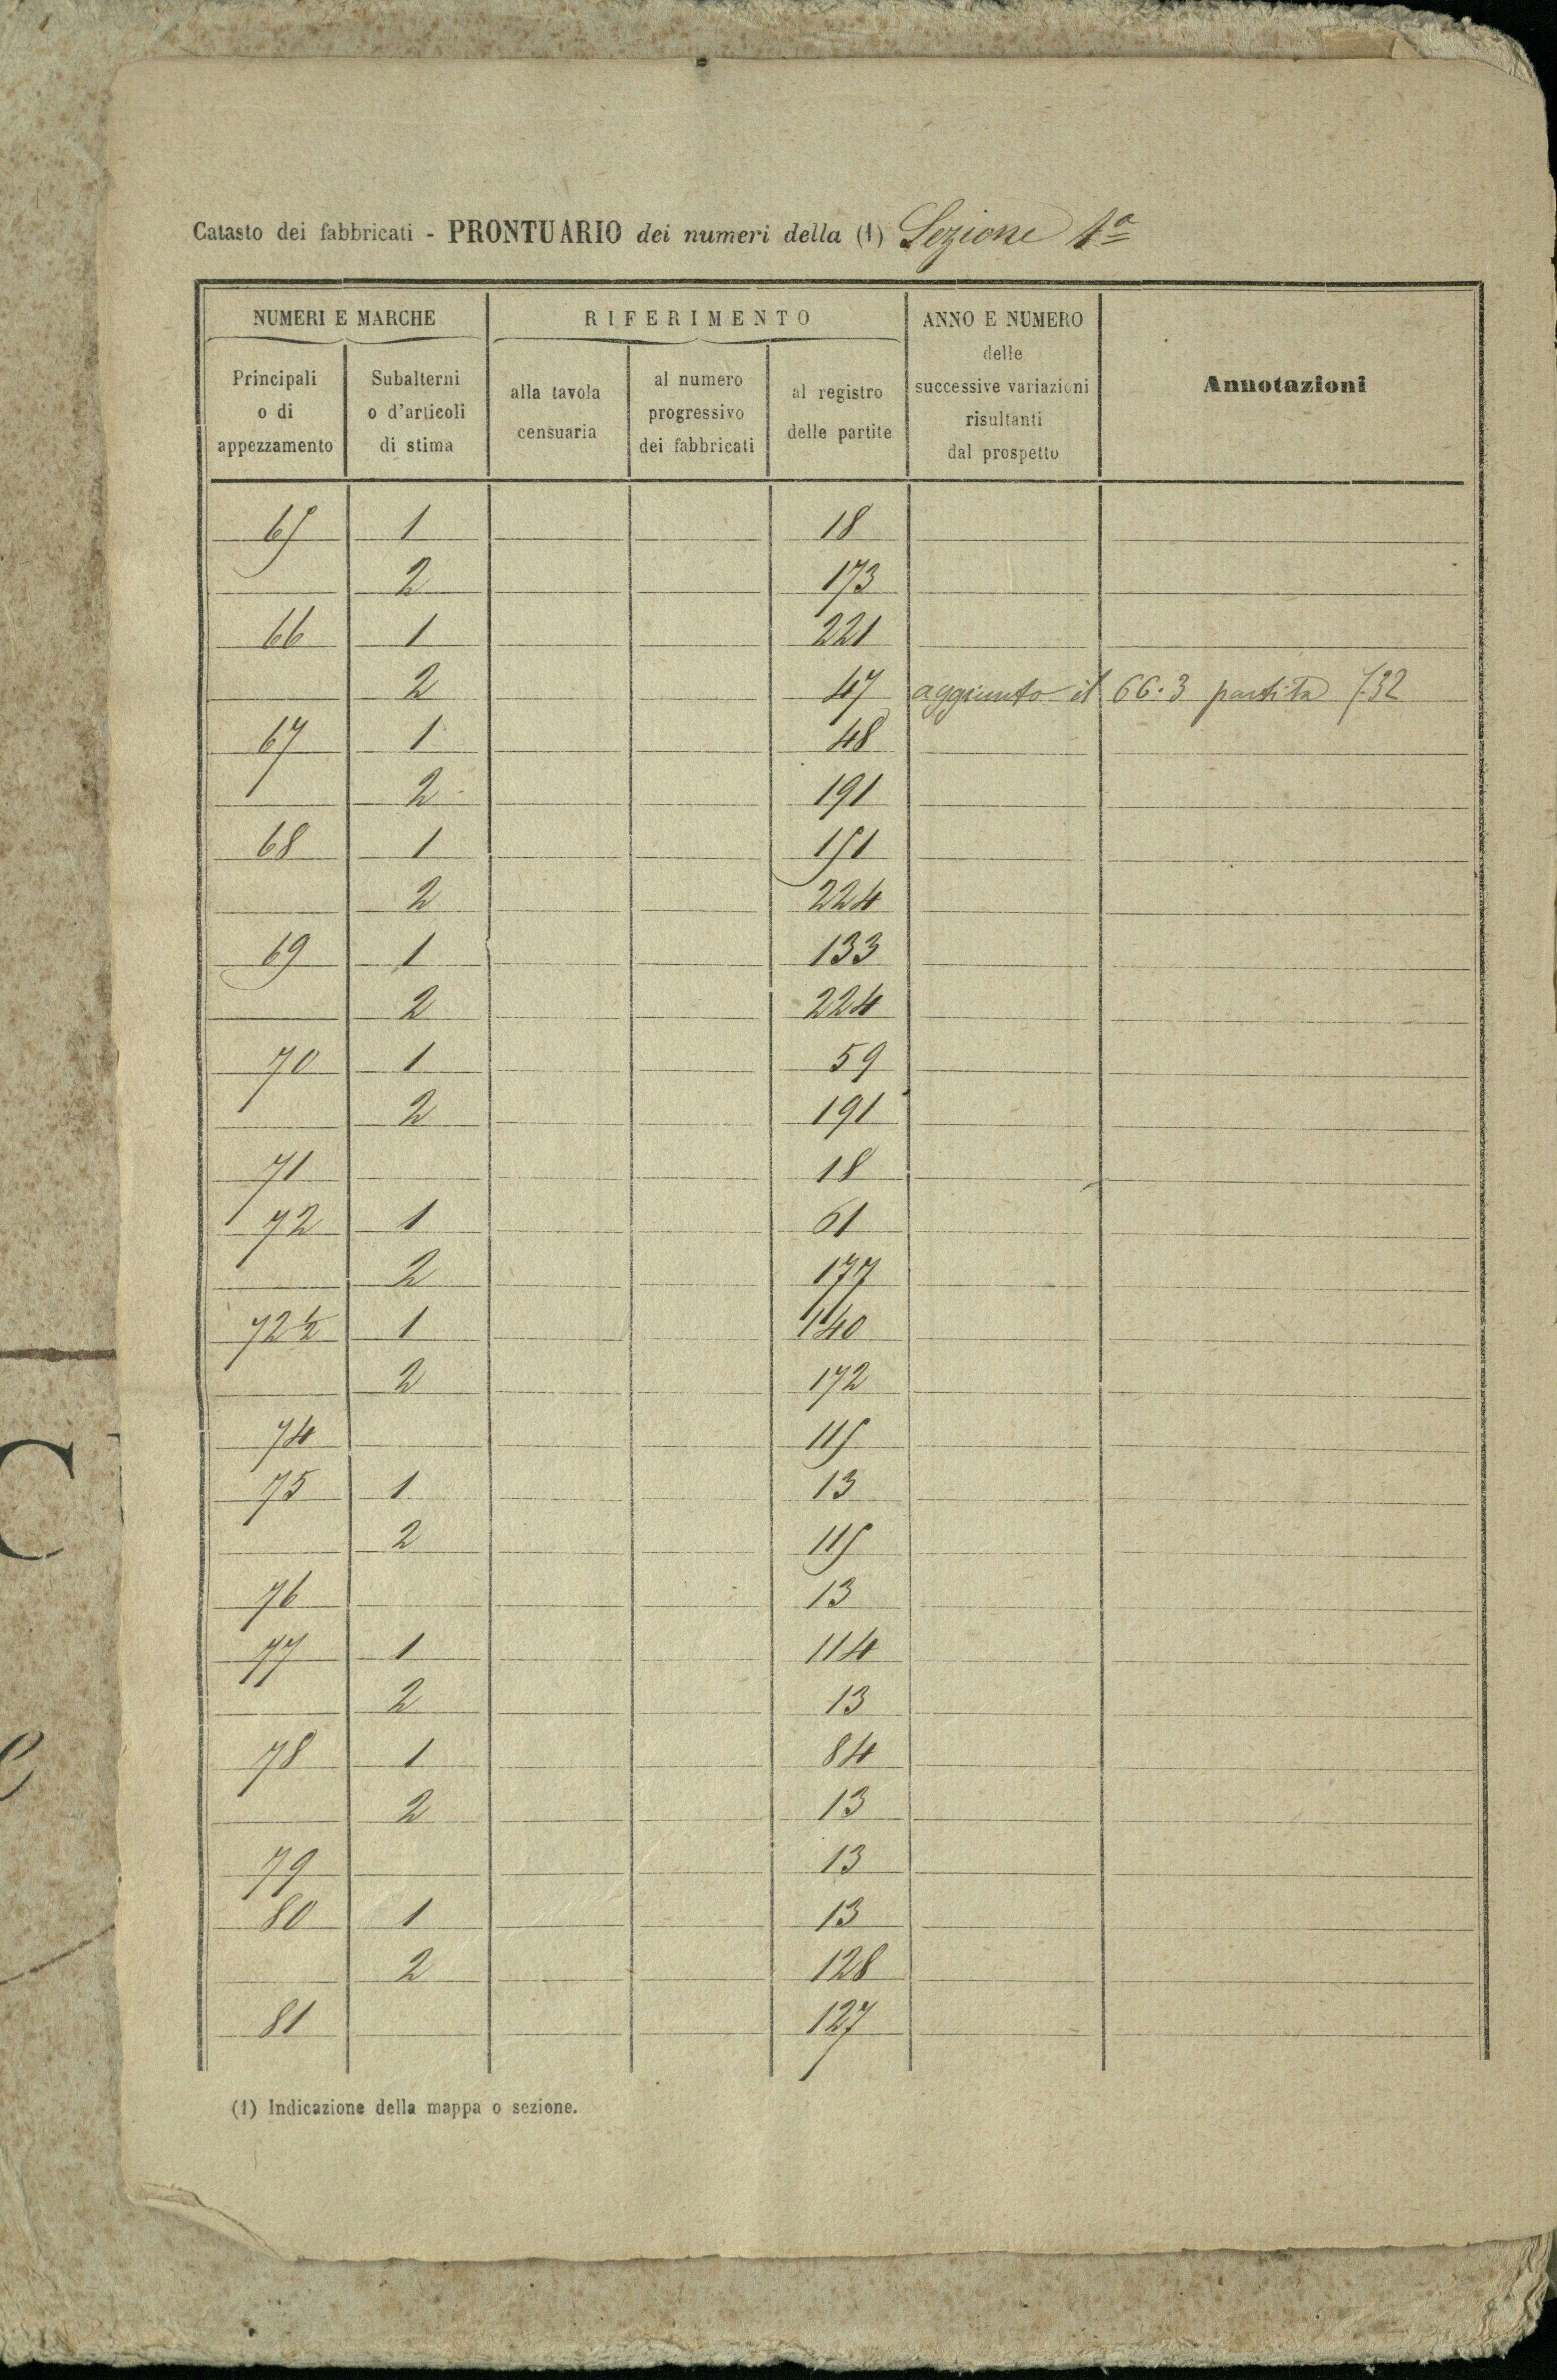 Catasto dei fabbricati - PRONTUARIO dei numeri della (1) Sezione 1ª
NUMERI E MARCHE
Principali o di appezzamento
Subalterni o d'articoli di stima
RIFERIMENTO
alla tavola censuaria
al numero progressivo dei fabbricati
al registro delle partite
ANNO E NUMERO delle successive variazioni risultanti dal prospetto
Annotazioni
65 1 18
2 173
66 1 221
2 47 aggiunto il 66.3 partita 732
67 1 48
2 191
68 1 151
2 224
69 1 133
2 224
70 1 59
2 191
71 18
72 1 61
2 177
72 ½ 1 140
2 172
74 115
75 1 13
2 115
76 13
77 1 114
2 13
78 1 84
2 13
79 13
80 1 13
2 128
81 127
(1) Indicazione della mappa o sezione.